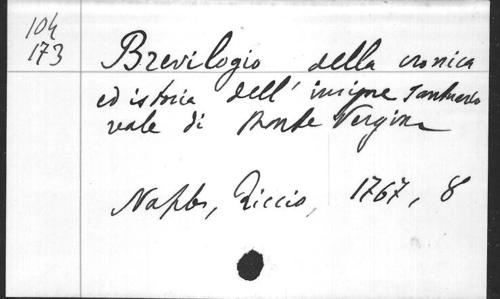 104
173
Brevilogio della cronica
ed istoria dell' insigne Santuario
reale di Monte Vergine
Naples, Riccio, 1767, 8